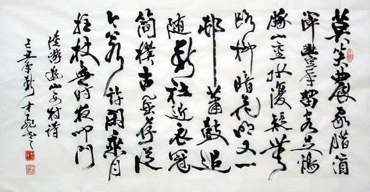 莫笑農家臘酒
渾豐年留客足雞
豚山重水復疑無
路柳暗花明又一
邨簫鼓追
隨春社近衣冠
簡樸古風存從
今若許閒乘月
拄杖無時夜叩門
陸游遊山西村詩